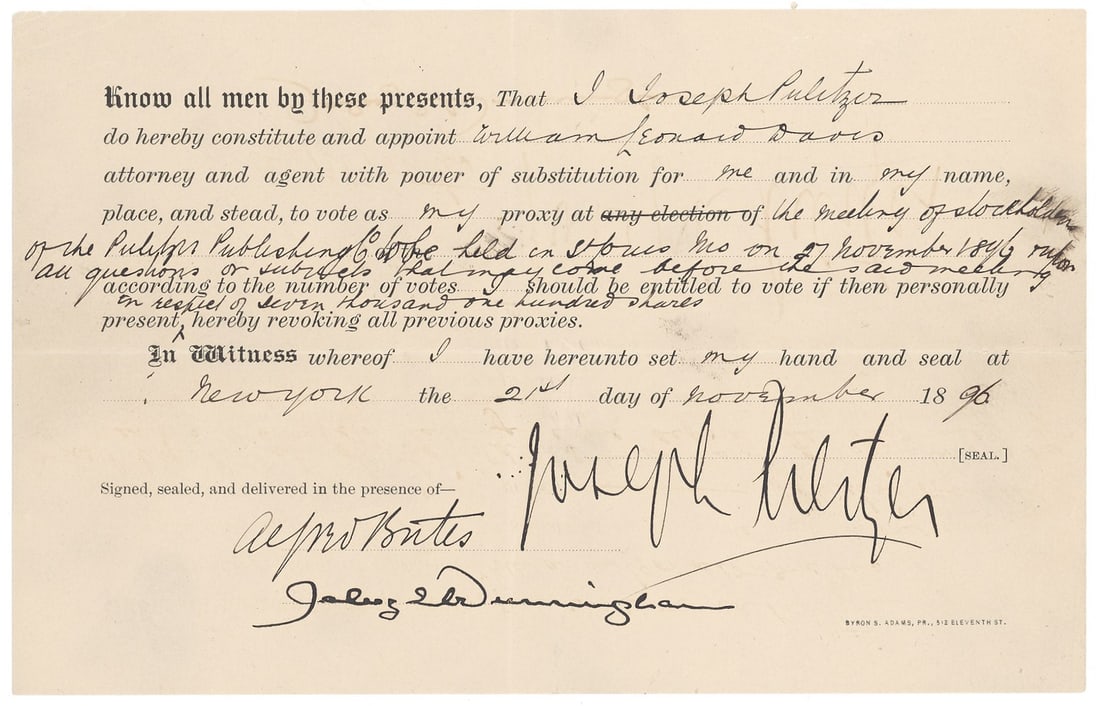 Know all men by these presents, That I Joseph Pulitzer
do hereby constitute and appoint William Leonard Davis
attorney and agent with power of substitution for me and in my name,
place, and stead, to vote as my proxy at any election of the meeting of stockholders
of the Pulitzer Publishing Co to be held in St Louis Mo on 27 November 1896 upon
all questions or subjects that may come before the said meeting
according to the number of votes I should be entitled to vote if then personally
in respect of seven thousand one hundred shares
present, hereby revoking all previous proxies.
In Witness whereof I have hereunto set my hand and seal at
New York the 21st day of November 1896
Joseph Pulitzer [SEAL.]
Signed, sealed, and delivered in the presence of—
Alfred Butes
Dunningham
BYRON S. ADAMS, PR., 512 ELEVENTH ST.